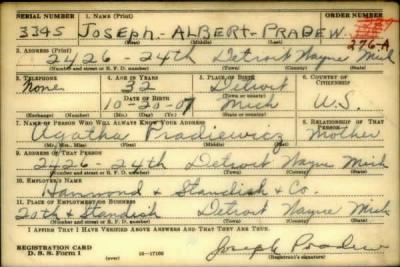 SERIAL NUMBER 1. NAME (Print) ORDER NUMBER
3345 JOSEPH - ALBERT - PRADEW
(First) (Middle) (Last) 276-A
2. ADDRESS (Print)
2426 - 24th Detroit Wayne Mich
(Number and street or R. F. D. number) (Town) (County) (State)
3. TELEPHONE 4. AGE IN YEARS 5. PLACE OF BIRTH 6. COUNTRY OF CITIZENSHIP
None 32 Detroit
DATE OF BIRTH (Town or county)
10-20-07 Mich U.S.
(Mo.) (Day) (Yr.) (State or country)
7. NAME OF PERSON WHO WILL ALWAYS KNOW YOUR ADDRESS 8. RELATIONSHIP OF THAT PERSON
Agatha Pradiewicz Mother
(Mr., Mrs., Miss) (First) (Middle) (Last)
9. ADDRESS OF THAT PERSON
2426 - 24th Detroit Wayne Mich
(Number and street or R. F. D. number) (Town) (County) (State)
10. EMPLOYER'S NAME
Hammond & Standish & Co.
11. PLACE OF EMPLOYMENT OR BUSINESS
20th & Standish Detroit Wayne Mich
(Number and street or R. F. D. number) (Town) (County) (State)
I AFFIRM THAT I HAVE VERIFIED ABOVE ANSWERS AND THAT THEY ARE TRUE.
REGISTRATION CARD
D. S. S. Form 1 (over) 16-17105 Joseph Pradew
(Registrant's signature)